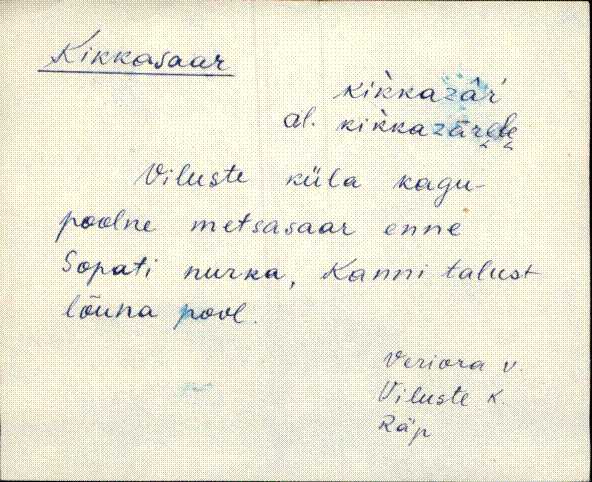 Kikkasaar
kìkkazâŕ
al. kìkkazārɛlɛ
Viluste küla kagu-
poolne metsasaar enne
Sopati nurka, Kanni talust
lõuna pool.
Veriora v.
Viluste k.
Räp